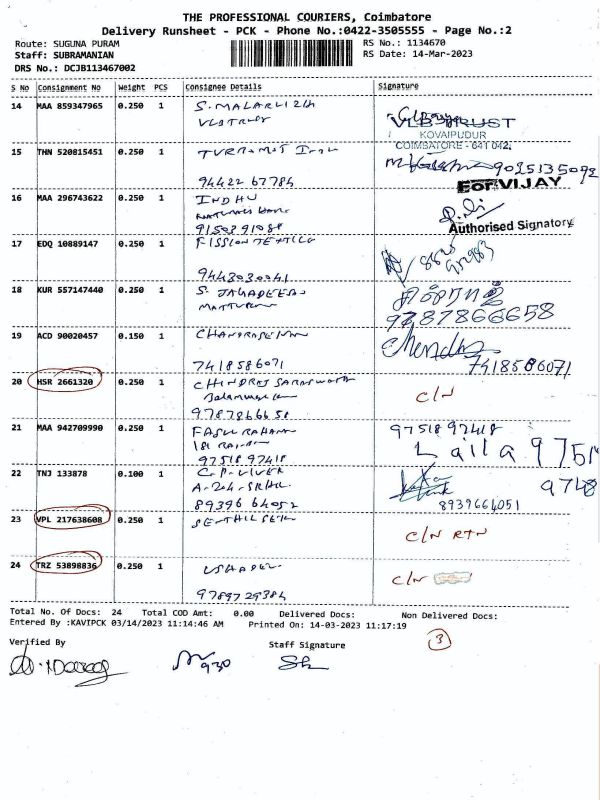 THE PROFESSIONAL COURIERS, Coimbatore
Delivery Runsheet - PCK - Phone No.:0422-3505555 - Page No.:2
Route: SUGUNA PURAM
RS No.: 1134670
Staff: SUBRAMANIAN
RS Date: 14-Mar-2023
DRS No.: DCJB113467002
S No Consignment No Weight PCS Consignee Details Signature
14 MAA 859347965 0.250 1 S. MALARLIZH
VLB TRUST
VLB TRUST
KOVAIPUDUR
COIMBATORE - 641 042.
15 THN 520815451 0.250 1
9025135092
94422 67784
For VIJAY
16 MAA 296743622 0.250 1 INDHU
9150391088
Authorised Signatory
17 EDQ 10889147 0.250 1 FISSION TEXTILE
9443030041
18 KUR 557147440 0.250 1 S. JAGADEESH
9787866658
19 ACD 90020457 0.150 1 CHANDRASEKAR
7418586071
7418586071
20 HSR 2661320 0.250 1
C/N
9787866658
21 MAA 942709990 0.250 1 FASLU RAHAMAN
97518 97418
97518 97418
Laila 9751
9748
22 TNJ 133878 0.100 1
89396 64052
8939664051
23 VPL 217638608 0.250 1
C/N RTN
24 TRZ 53898836 0.250 1
C/N
9789729384
Total No. Of Docs: 24 Total COD Amt: 0.00 Delivered Docs: Non Delivered Docs:
Entered By :KAVIPCK 03/14/2023 11:14:46 AM Printed On: 14-03-2023 11:17:19
3
Verified By
Staff Signature
930